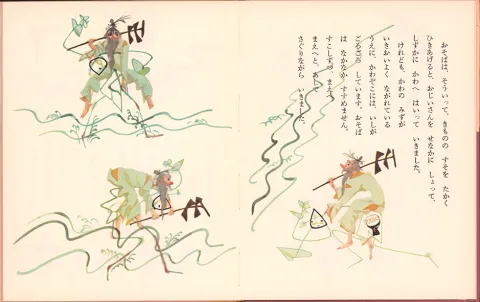 おそばは、そういって、きものの すそを たかく
ひきあげると、おじいさんを せなかに しょって、
しずかに かわへ はいって いきました。
けれども、かわの みずが
いきおいよく ながれている
うえに、かわぞこには、いしが
ごろごろ しています。おそば
は なかなか すすめません。
すこしずつ、まえへ
まえへと、あして
さぐりながら いきました。